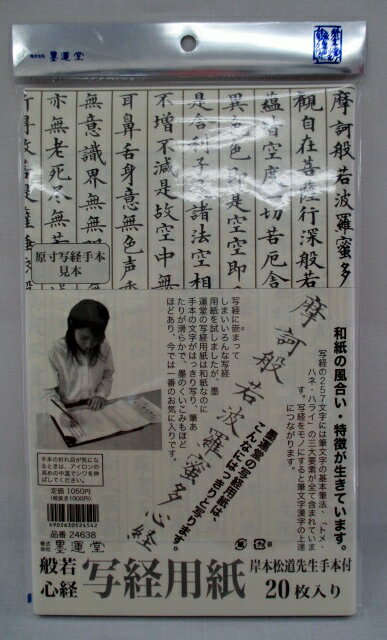 株式会社 墨運堂
摩訶般若波羅蜜多
観自在菩薩行深般若
蘊皆空度一切苦厄舎
異色色即是空空即
是舎利子是諸法空相
不増不減是故空中無
耳鼻舌身意無色声
無意識界無無
亦無老死尽無
原寸写経手本
見本
和紙の風合い・特徴が生きています。
写経の257文字には筆文字の基本筆法、「トメ・
ハネ・ハライ」の三大要素が全て含まれていま
す。写経をモノにすると筆文字漢字の上達
につながります。
摩訶般若波羅蜜多心経
墨運堂の写経用紙は、
こんなにはっきりと写ります。
写経に嵌まって
しまいいろんな写経
用紙を試しましたが、墨
運堂の写経用紙は和紙なのに
手本の文字がはっきり写り、筆あ
たりが滑らかで、墨のくいこみもほど
ほどあり、今では一番のお気に入りです。
手本の折れ目が気にな
るときは、アイロンの
高めの中温でシワを伸
ばしてください。
定価 1050円
(税抜き1000円)
4902630526542
品番 24638
株式会社 墨運堂
般若心経 写経用紙
岸本松道先生手本付
20枚入り